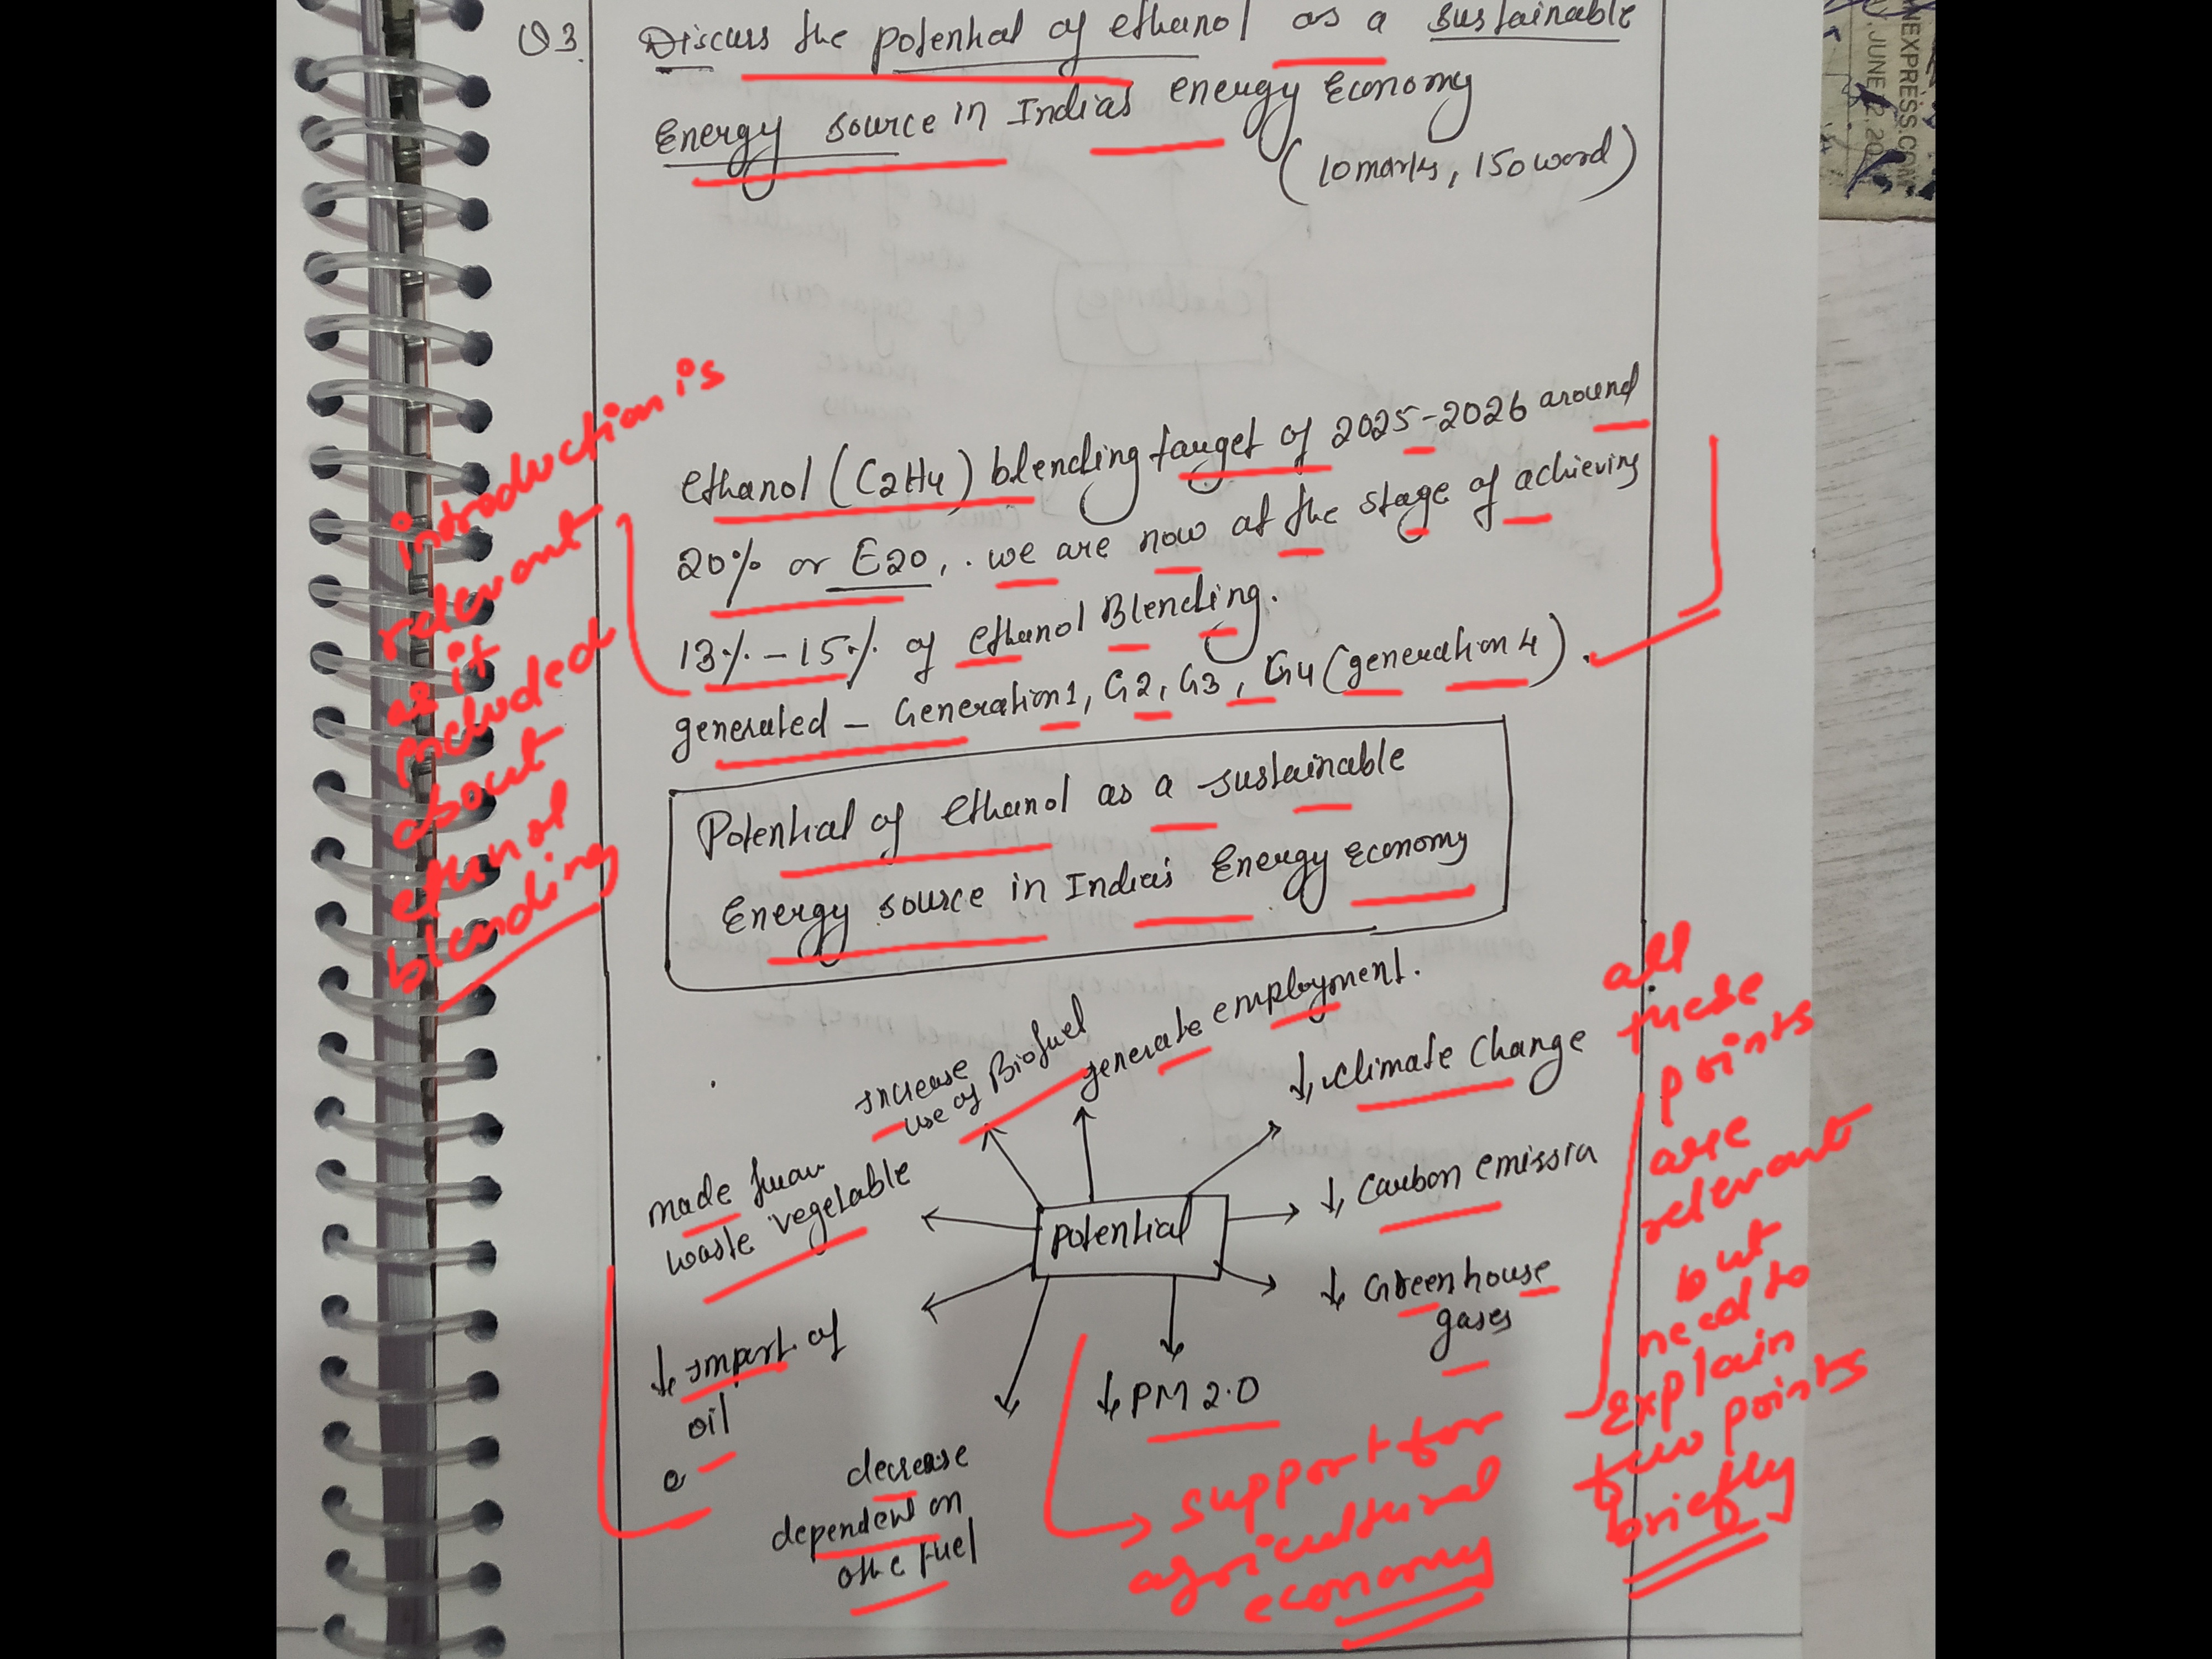 Q3. Discuss the potential of ethanol as a sustainable
Energy source in India's energy Economy
(10 marks, 150 word)
NEXPRESS.COM
JUNE 12, 20
introduction is
relevant
as it
included
about
ethanol
blending
Ethanol (C2H4) blending target of 2025-2026 around
20% or E20, . we are now at the stage of achieving
13% - 15% of ethanol Blending.
generated - Generation1, G2, G3, G4 (generation 4).
Potential of Ethanol as a sustainable
Energy source in India's Energy economy
Increase
use of Biofuel
generate employment.
↓ climate change
made from
waste vegetable
Potential
↓ Carbon emission
↓ Greenhouse
gases
↓ import of
oil
↓ PM 2.0
decrease
dependent on
fuel
all
these
points
are
relevant
but
need to
explain
two points
briefly
support for
agricultural
economy